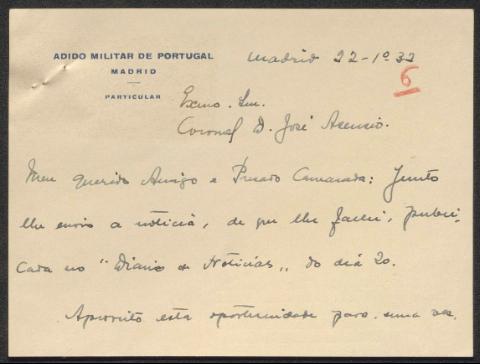 ADIDO MILITAR DE PORTUGAL
MADRID
PARTICULAR
Madrid 22-1º-33
6
Exmo. Snr.
Coronel D. José Asensio.
Meu querido Amigo e Prezado Camarada: Junto
lhe envio a notícia, de que lhe falei, publi-
cada no "Diario de Notícias" do dia 20.
Aproveito esta oportunidade para uma vez